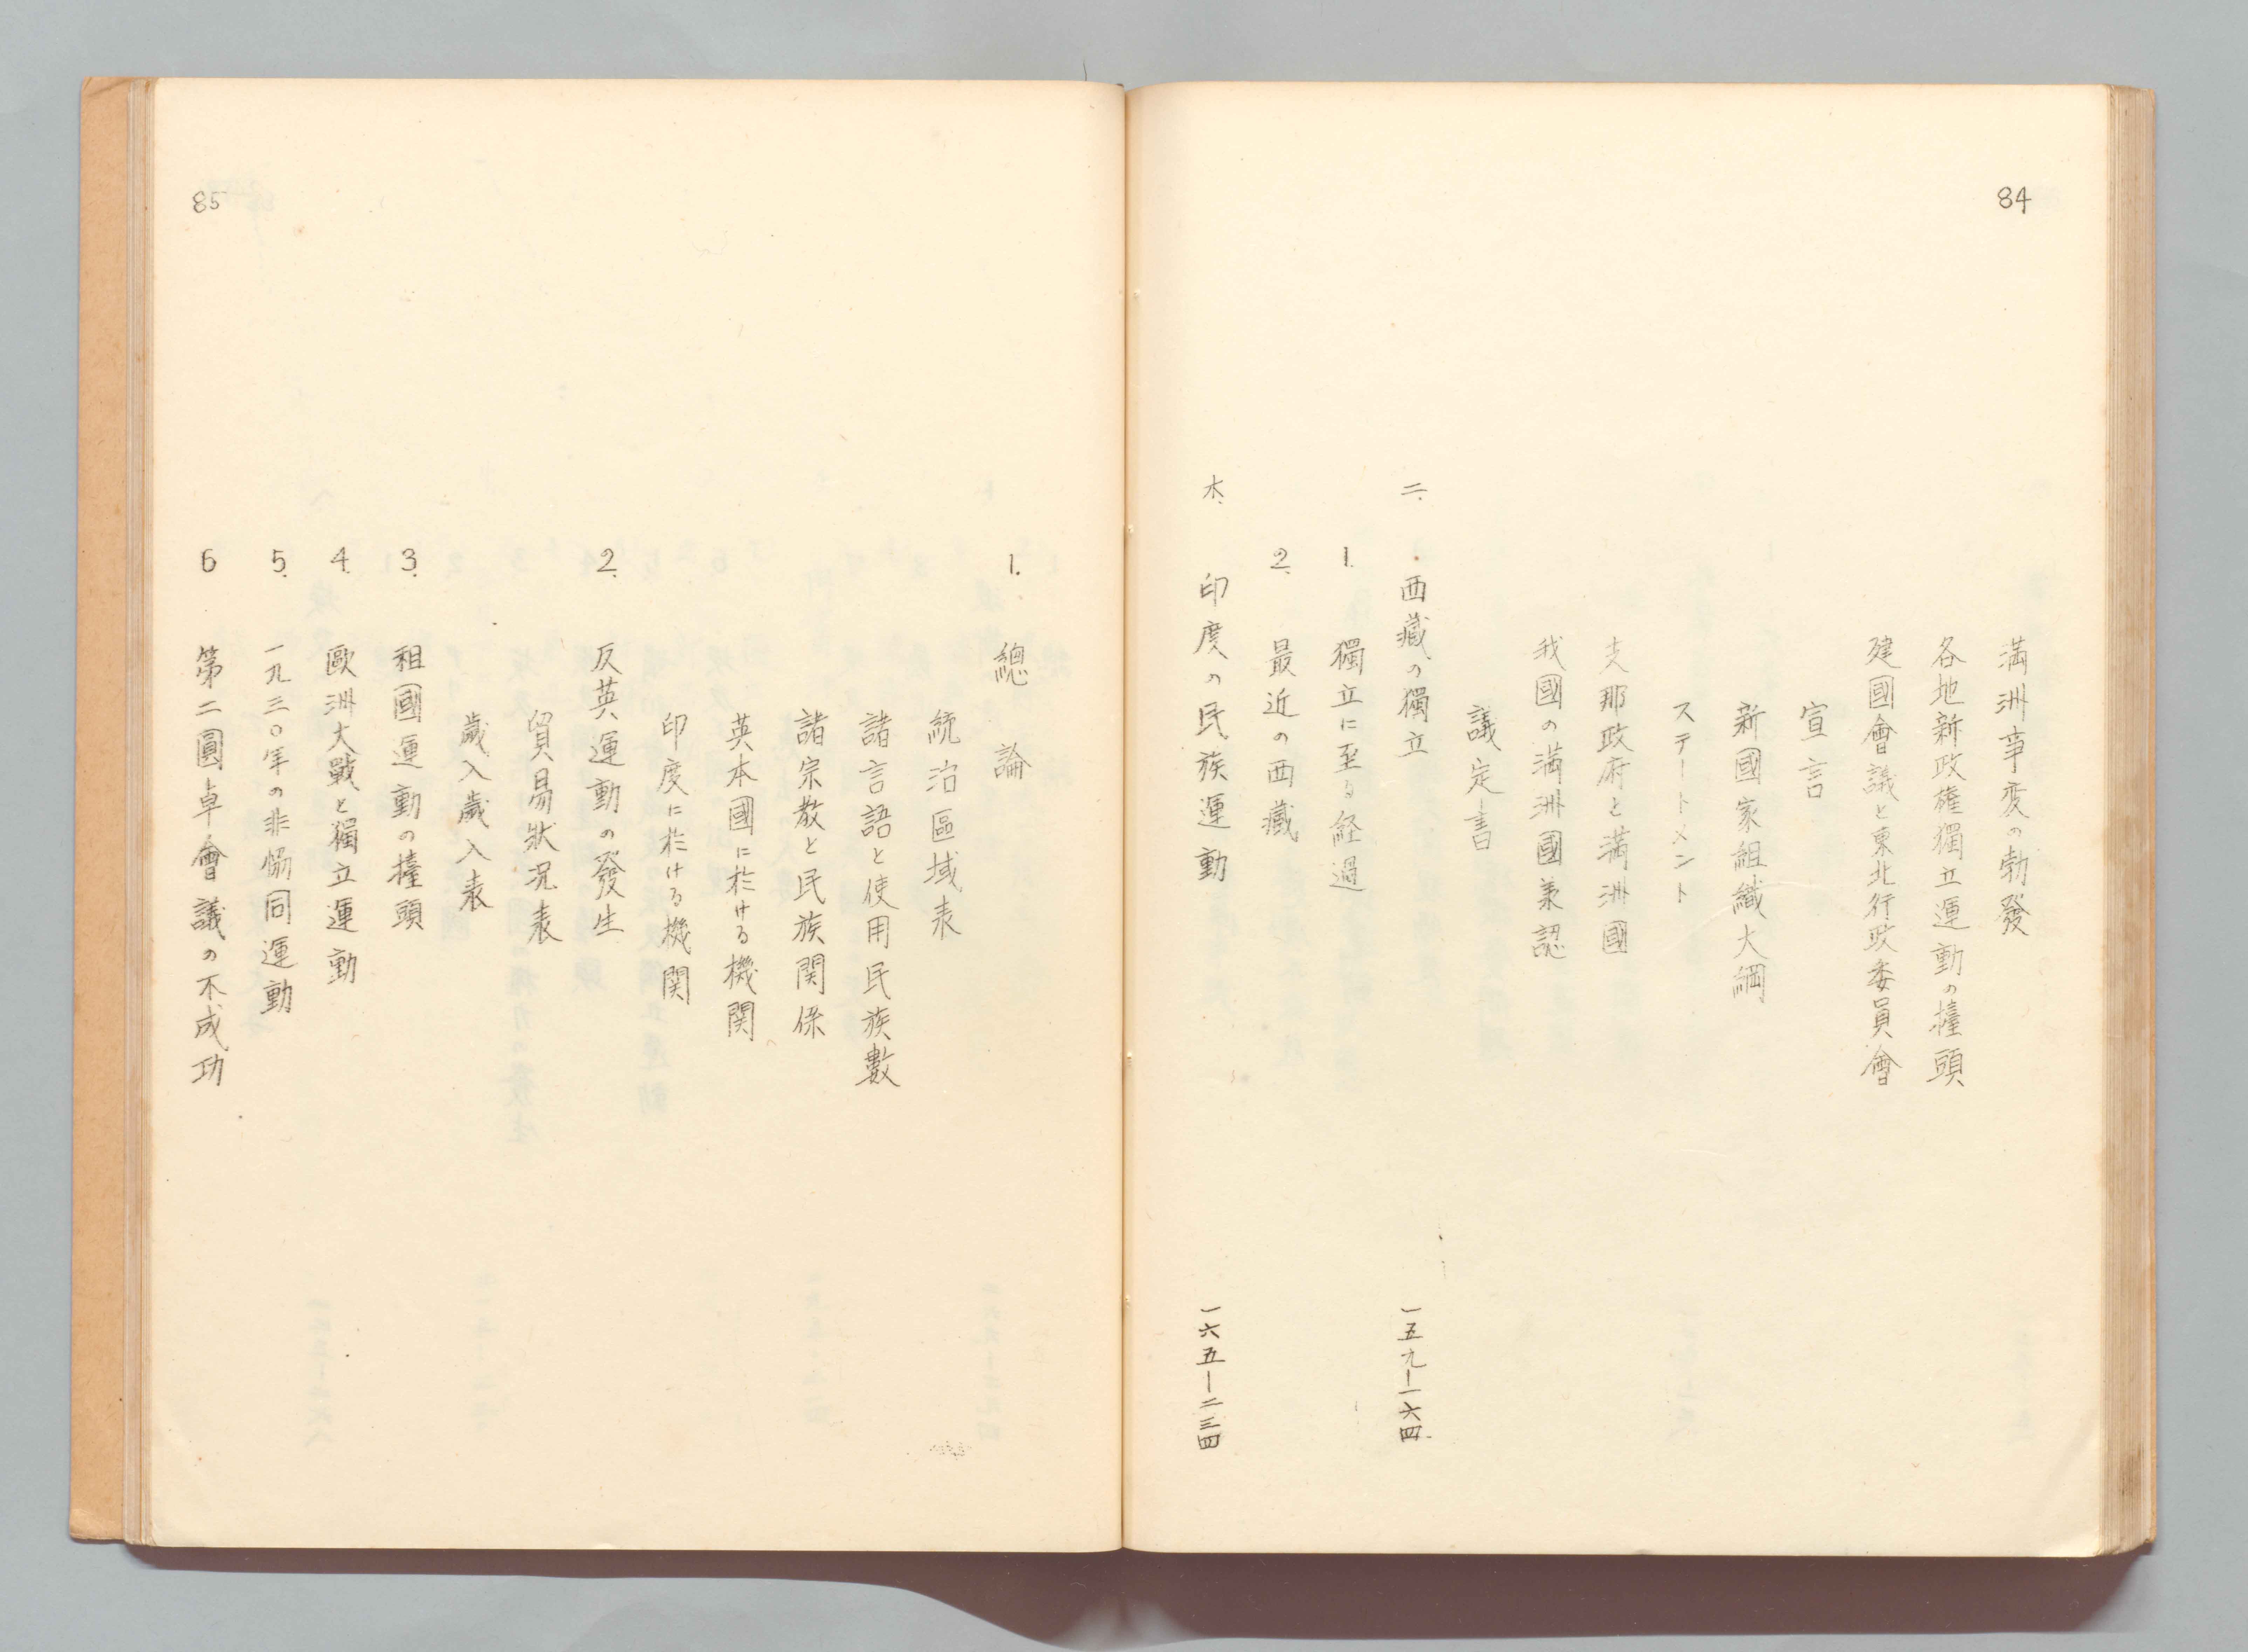 84
満洲事変の勃發
各地新政権獨立運動の擡頭
建國會議と東北行政委員會
宣言
新國家組織大綱
ステートメント
支那政府と満洲國
我國の満洲國承認
議定書
ニ. 西藏の獨立 一五九―一六四
1. 獨立に至る経過
2. 最近の西藏
ホ. 印度の民族運動 一六五―二三四
85
1. 總論
統治區域表
諸言語と使用民族數
諸宗教と民族関係
英本國に於ける機関
印度に於ける機関
2. 反英運動の發生
貿易狀況表
歲入歲入表
3. 祖國運動の擡頭
4. 歐洲大戰と獨立運動
5. 一九三〇年の非恊同運動
6 第二圓卓會議の不成功